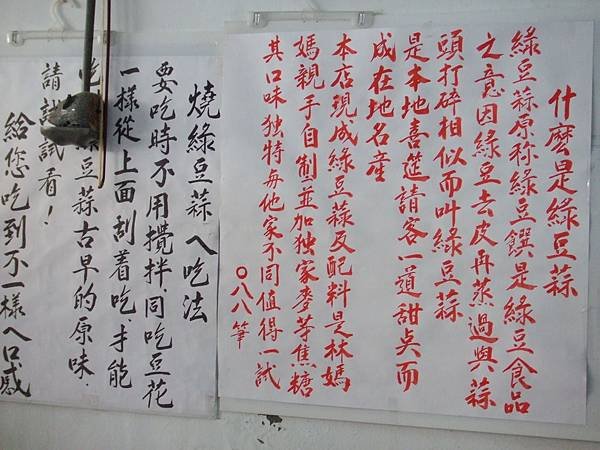 什麼是綠豆蒜
綠豆蒜原称綠豆饌是綠豆食品
之意因綠豆去皮再蒸過與蒜
頭打碎相似而叫綠豆蒜
是本地喜筵請客一道甜点而
成在地名産
本店現成綠豆蒜及配料是林媽
媽親手自製並加独家麥芽焦糖
其口味独特與他家不同值得一試
〇八八筆
燒綠豆蒜ㄟ吃法
要吃時不用攪拌.同吃豆花
一樣從上面刮着吃.才能
吃 豆蒜古早的原味.
請試試看!
給您吃到不一樣ㄟ口感